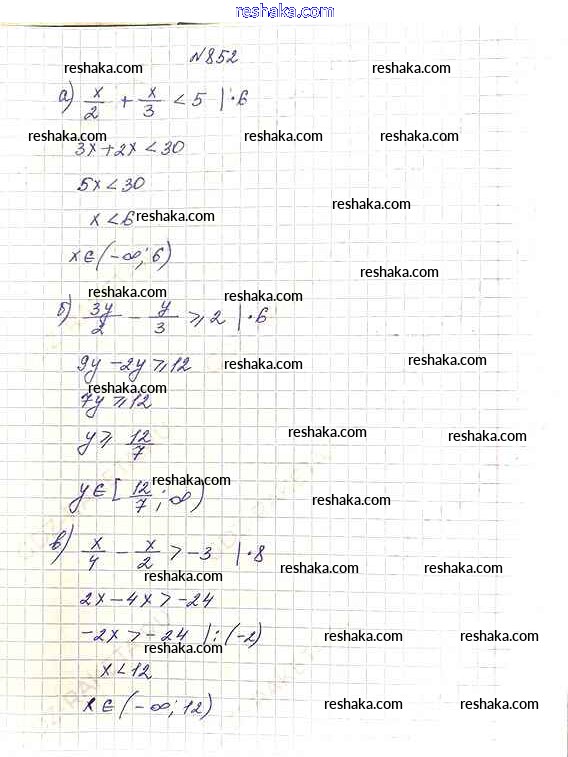 reshaka.com
№852
reshaka.com reshaka.com
а) x/2 + x/3 < 5 |·6
reshaka.com reshaka.com reshaka.com
3x+2x<30
5x<30
reshaka.com
x<6 reshaka.com
x∈(-∞; 6)
reshaka.com
reshaka.com reshaka.com
б) 3y/2 - y/3 ⩾ 2 |·6
9y-2y⩾12 reshaka.com reshaka.com
reshaka.com
7y⩾12
y⩾ 12/7 reshaka.com reshaka.com
reshaka.com
y∈[12/7; ∞) reshaka.com
в) x/4 - x/2 > -3 |·8
reshaka.com reshaka.com reshaka.com
2x-4x>-24
-2x>-24 |:(-2) reshaka.com reshaka.com
reshaka.com
x<12
x∈(-∞; 12) reshaka.com reshaka.com